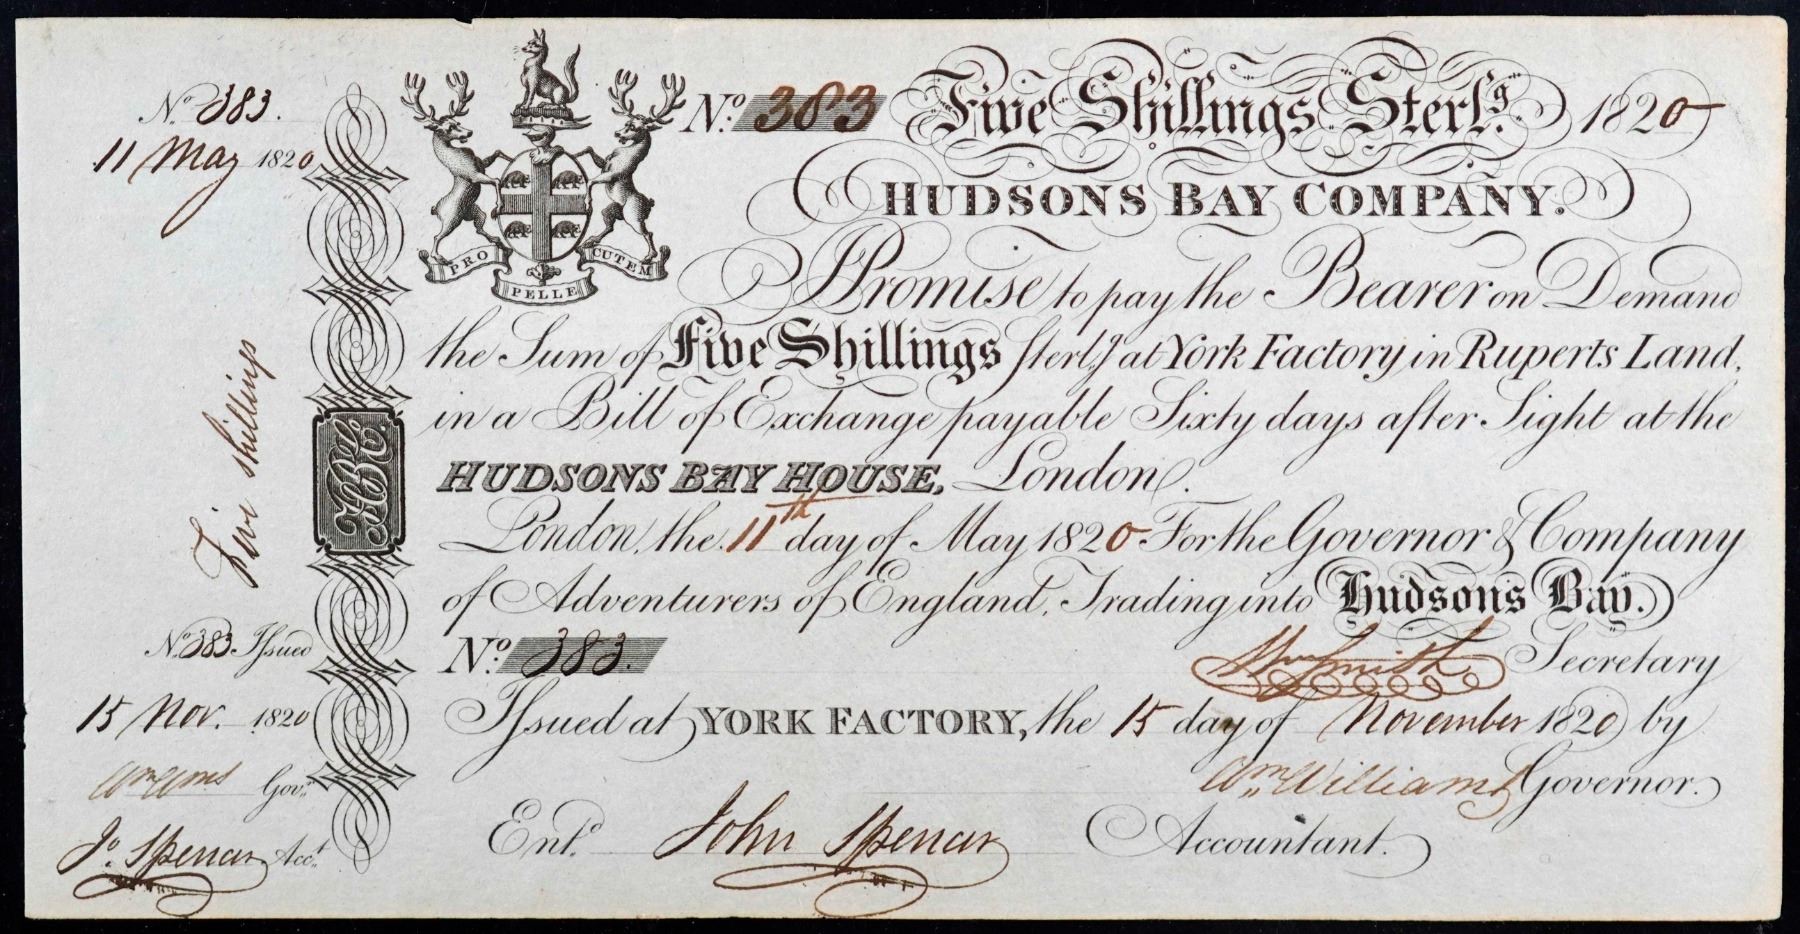 No. 383.
11 May 1820
Five shillings
No. 383 Issued
15 Nov. 1820
Wm Wms Govr.
Jo. Spencer Acct.
HBCo.
PRO PELLE CUTEM
No. 383 Five Shillings Sterlg. 1820
HUDSONS BAY COMPANY.
I Promise to pay the Bearer on Demand
the Sum of Five Shillings Sterlg. at York Factory in Ruperts Land,
in a Bill of Exchange payable Sixty days after Sight at the
HUDSONS BAY HOUSE, London.
London, the 11th day of May 1820 For the Governor & Company
of Adventurers of England, Trading into Hudsons Bay.
No. 383.
Wm Smith Secretary
Issued at YORK FACTORY, the 15 day of November 1820 by
Wm Williams Governor.
Entd. John Spencer Accountant.